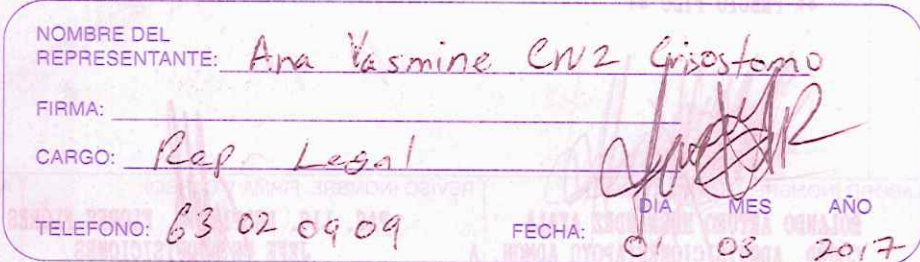 NOMBRE DEL
REPRESENTANTE: Ana Yasmine Cruz Grisostomo
FIRMA:
CARGO: Rep. Legal
DIA MES AÑO
TELEFONO: 63 02 09 09 FECHA: 01 03 2017